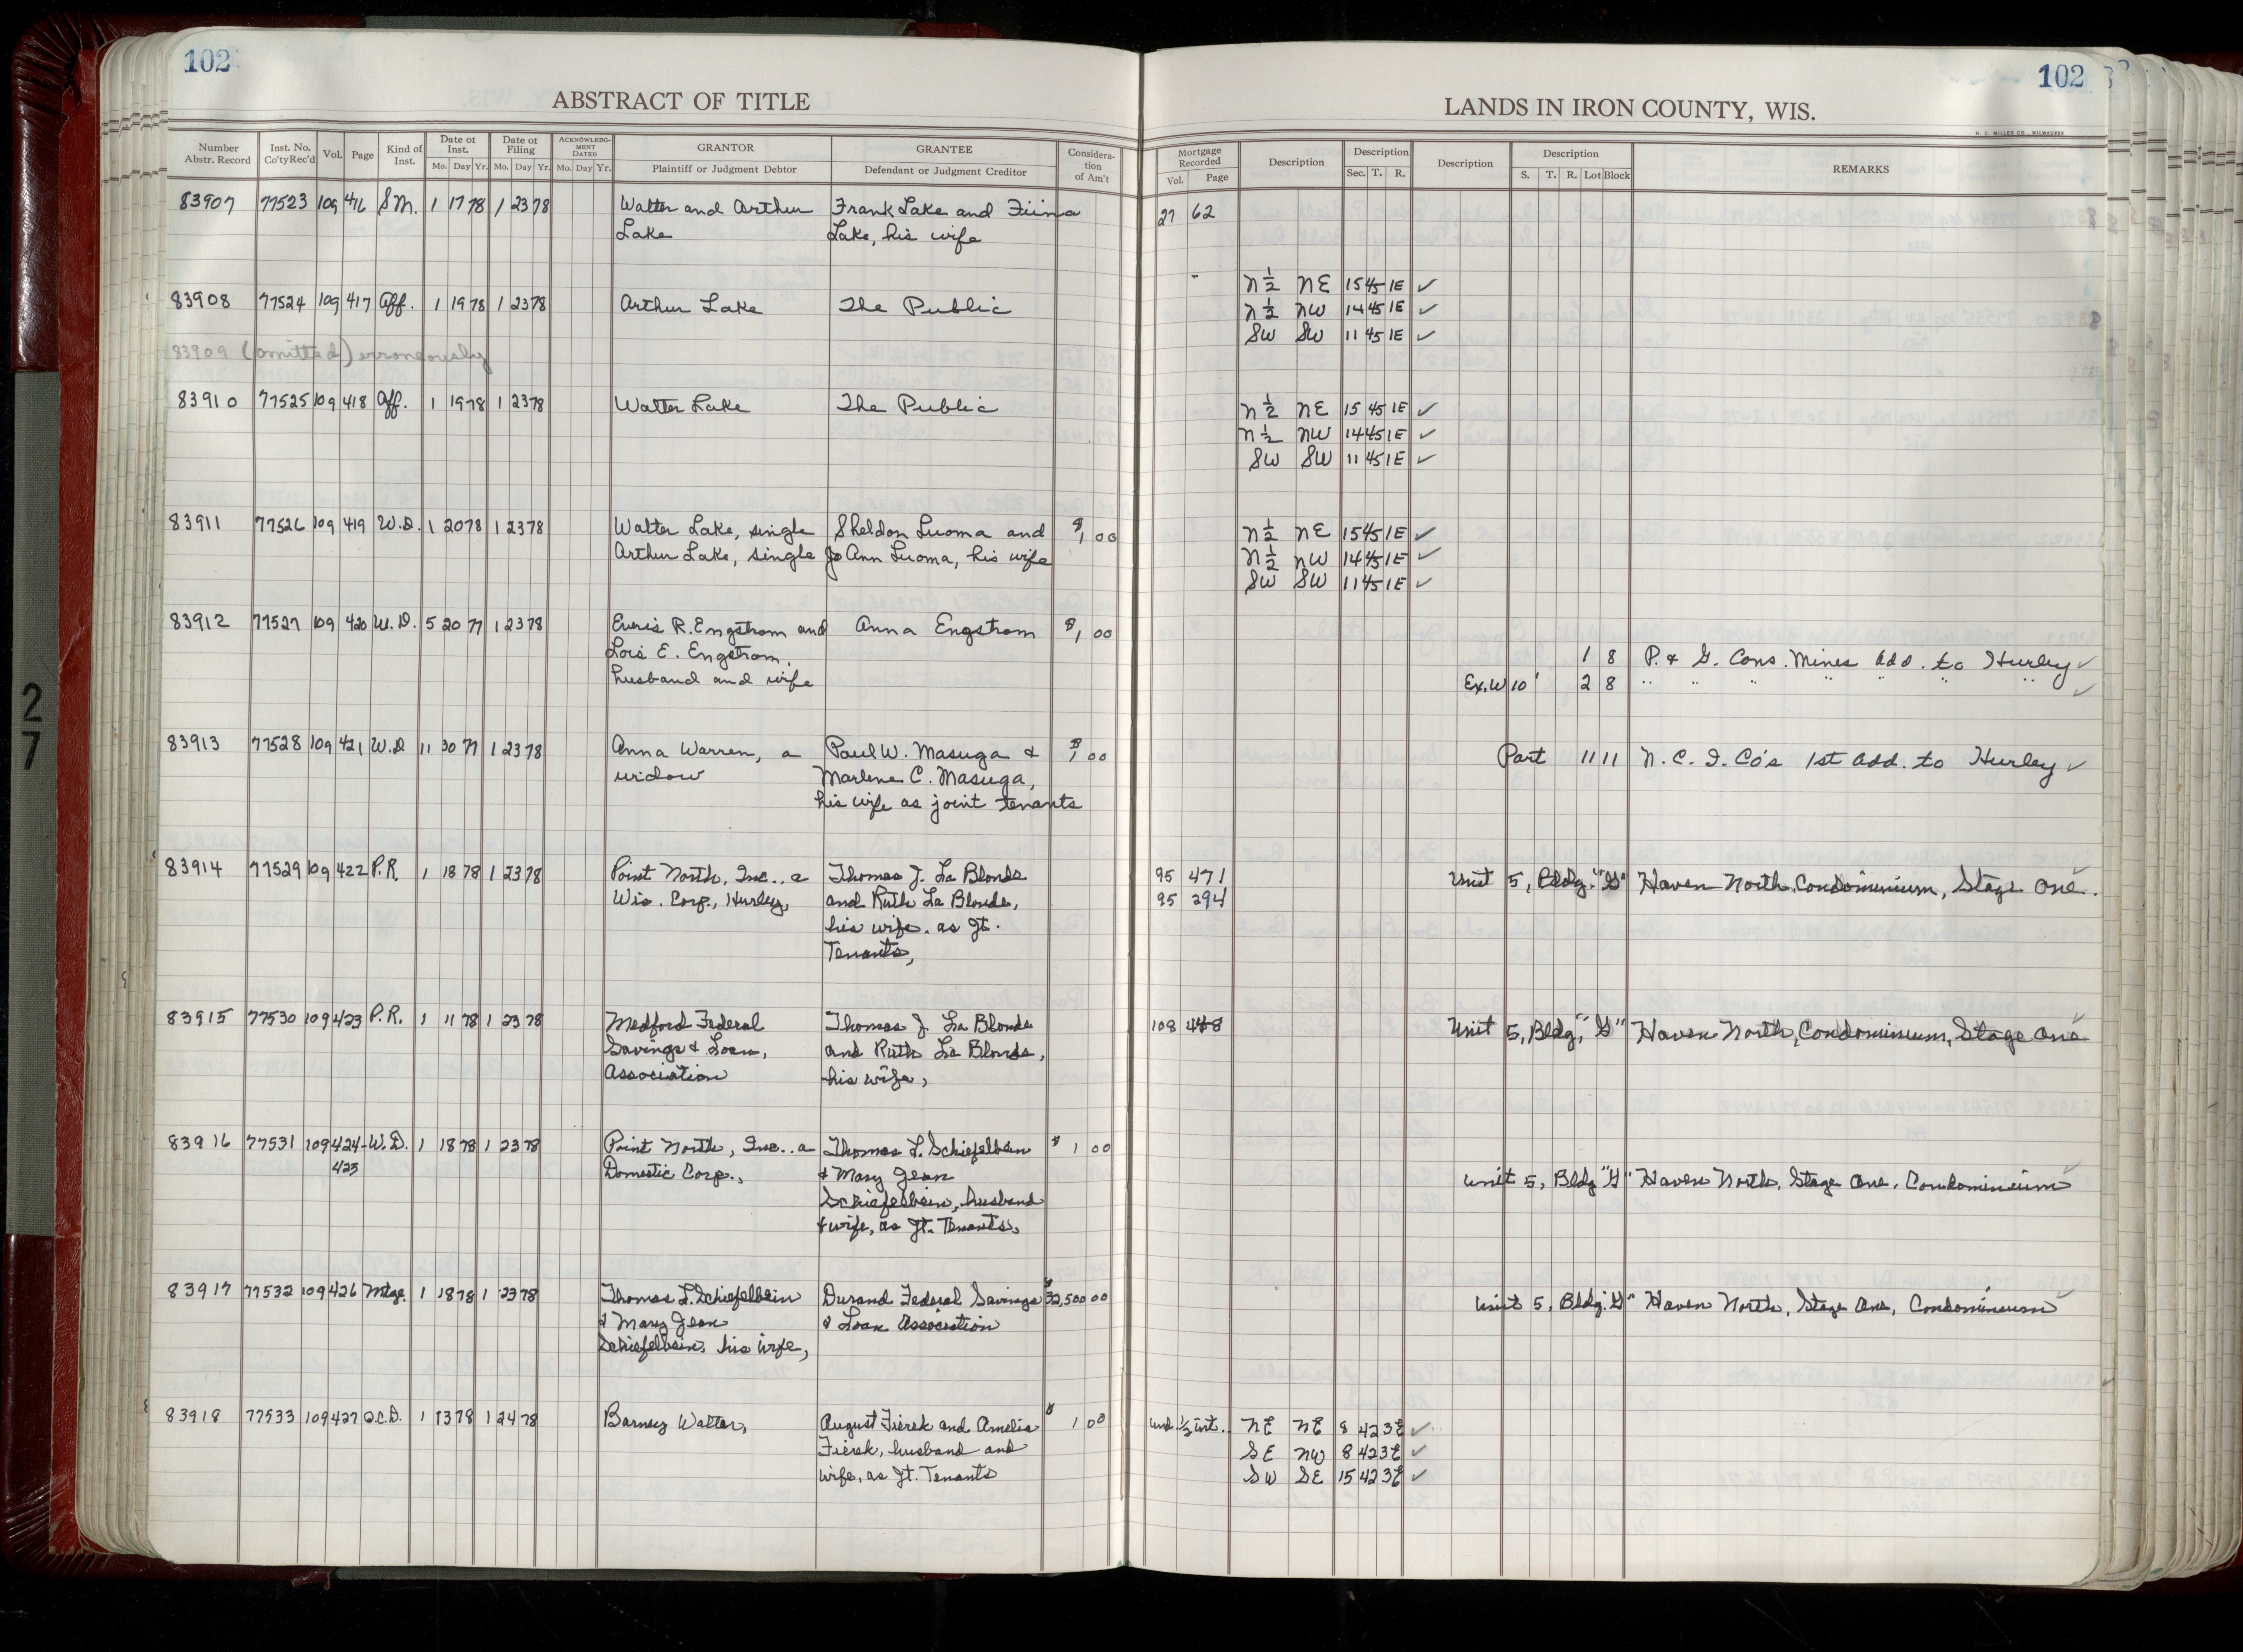 102
ABSTRACT OF TITLE
Number Abstr. Record | Inst. No. Co'ty Rec'd | Vol. | Page | Kind of Inst. | Date of Inst. Mo. Day Yr. | Date of Filing Mo. Day Yr. | ACKNOWLEDGMENT DATED Mo. Day Yr. | GRANTOR Plaintiff or Judgment Debtor | GRANTEE Defendant or Judgment Creditor | Consideration of Am't
83907 77523 109 416 S.M. 1 17 78 1 23 78 Walter and Arthur Frank Lake and Fiina
Lake Lake, his wife
83908 77524 109 417 Aff. 1 19 78 1 23 78 Arthur Lake The Public
83909 (omitted) erroneously
83910 77525 109 418 Aff. 1 19 78 1 23 78 Walter Lake The Public
83911 77526 109 419 W.D. 1 20 78 1 23 78 Walter Lake, single Sheldon Luoma and $1 00
Arthur Lake, single Jo Ann Luoma, his wife
83912 77527 109 420 W.D. 5 20 77 1 23 78 R. Engstrom and Anna Engstrom $1 00
Lois E. Engstrom,
husband and wife
83913 77528 109 421 W.D 11 30 77 1 23 78 Anna Warren, a Paul W. Masuga & $1 00
widow Marlene C. Masuga,
his wife as joint tenants
83914 77529 109 422 P.R. 1 18 78 1 23 78 Point North, Inc., a Thomas J. La Blonde
Wis. Corp., Hurley, and Ruth La Blonde,
his wife, as Jt.
Tenants,
83915 77530 109 423 P.R. 1 11 78 1 23 78 Medford Federal Thomas J. La Blonde
Savings & Loan, and Ruth La Blonde,
Association his wife,
83916 77531 109 424- W.D. 1 18 78 1 23 78 Point North, Inc., a Thomas L. Schiefelbein $ 1 00
425 Domestic Corp., & Mary Jean
Schiefelbein, husband
& wife, as Jt. Tenants,
83917 77532 109 426 Mtge. 1 18 78 1 23 78 Thomas L. Schiefelbein Durand Federal Savings $32,500 00
& Mary Jean & Loan Association
Schiefelbein, his wife,
83918 77533 109 427 Q.C.D. 1 13 78 1 24 78 Barney Walter, August Fierek and Amelia $ 1 00
Fierek, husband and
wife, as Jt. Tenants
102
LANDS IN IRON COUNTY, WIS.
H. C. MILLER CO., MILWAUKEE
Mortgage Recorded Vol. Page | Description | Description Sec. T. R. | Description | Description S. T. R. Lot Block | REMARKS
27 62
N ½ NE 15 45 1E ✓
N ½ NW 14 45 1E ✓
SW SW 11 45 1E ✓
N ½ NE 15 45 1E ✓
N ½ NW 14 45 1E ✓
SW SW 11 45 1E ✓
N ½ NE 15 45 1E ✓
N ½ NW 14 45 1E ✓
SW SW 11 45 1E ✓
1 8 P. & G. Cons. Mines Add. to Hurley ✓
Ex. W 10' 2 8 " " " " " " " ✓
Part 11 11 N. C. I. Co's 1st Add. to Hurley ✓
95 471 Unit 5, Bldg. "G" Haven North, Condominium, Stage One.
95 294
108 Unit 5, Bldg, "G" Haven North, Condominium, Stage One
Unit 5, Bldg "G" Haven North, Stage One, Condominium
Unit 5, Bldg. "G" Haven North, Stage One, Condominium
und. ½ int. NE NE 8 42 3E ✓
SE NW 8 42 3E ✓
SW SE 15 42 3E ✓
27